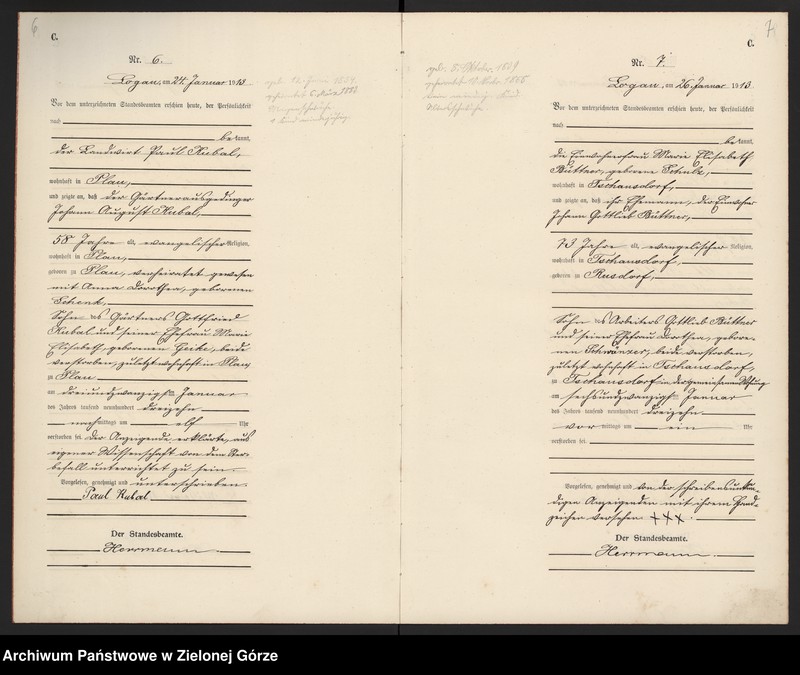 6
C.
Nr. 6.
Logau, am 24. Januar 1913
Vor dem unterzeichneten Standesbeamten erschien heute, der Persönlichkeit
nach
bekannt,
der Landwirt Paul Kubal,
wohnhaft in Plau,
und zeigte an, daß der Gärtnerausgedinger
Johann August Kubal,
58 Jahre alt, evangelischer Religion,
wohnhaft in Plau,
geboren zu Plau, verheiratet gewesen
mit Anna Dorothea, geborenen
Schenk,
Sohn des Gärtners Gottfried
Kubal und seiner Ehefrau Marie
Elisabeth, geborenen Heike, beide
verstorben, zuletzt wohnhaft in Plau
zu Plau
am dreiundzwanzigsten Januar
des Jahres tausend neunhundert dreizehn
nachmittags um elf Uhr
verstorben sei. Der Anzeigende erklärte, aus
eigener Wissenschaft von dem Ster-
befall unterrichtet zu sein.
Vorgelesen, genehmigt und unterschrieben.
Paul Kubal
Der Standesbeamte.
Herrmann
7
C.
Nr. 7.
Logau, am 26. Januar 1913
Vor dem unterzeichneten Standesbeamten erschien heute, der Persönlichkeit
nach
bekannt,
die Einwohnerfrau Marie Elisabeth
Büttner, geborene Schulz,
wohnhaft in Tschausdorf,
und zeigte an, daß ihr Ehemann, der Einwohner
Johann Gottlieb Büttner,
73 Jahre alt, evangelischer Religion,
wohnhaft in Tschausdorf,
geboren zu Rusdorf,
Sohn des Arbeiters Gottlieb Büttner
und seiner Ehefrau Dorothea, gebore-
nen beide verstorben,
zuletzt wohnhaft in Tschausdorf,
zu Tschausdorf in der gemeinsamen Wohnung
am sechsundzwanzigsten Januar
des Jahres tausend neunhundert dreizehn
vormittags um ein Uhr
verstorben sei.
Vorgelesen, genehmigt und von der schreibensunkun-
digen Anzeigenden mit ihrem Hand-
zeichen versehen. +++.
Der Standesbeamte.
Herrmann.
Archiwum Państwowe w Zielonej Górze